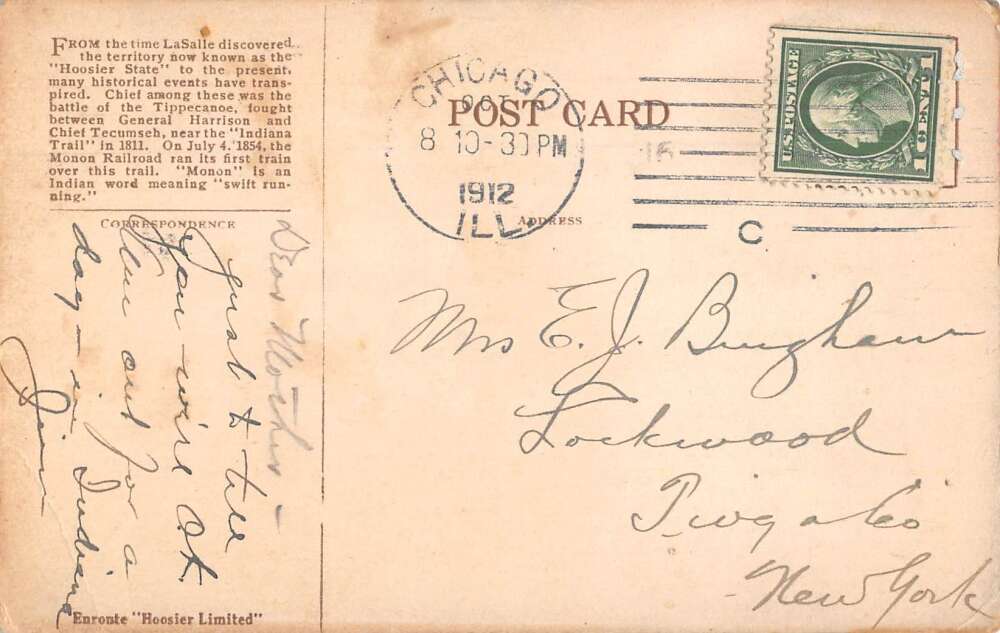 FROM the time LaSalle discovered
the territory now known as the
"Hoosier State" to the present,
many historical events have trans-
pired. Chief among these was the
battle of the Tippecanoe, fought
between General Harrison and
Chief Tecumseh, near the "Indiana
Trail" in 1811. On July 4, 1854, the
Monon Railroad ran its first train
over this trail. "Monon" is an
Indian word meaning "swift run-
ning."
CORRESPONDENCE
Dear Mother -
Just to tell
you - we're OK
Am out for a
day - in Indiana
Jim
Enronte "Hoosier Limited"
POST CARD
ADDRESS
CHICAGO
OCT
8 10-30 PM
1912
ILL.
C
U.S. POSTAGE
1 CENT 1
Mrs E. J. Bingham
Lockwood
Tioga Co
New York